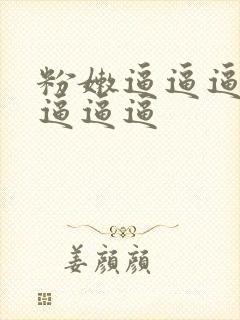 粉嫩逼逼逼
逼逼逼
姜顏顏